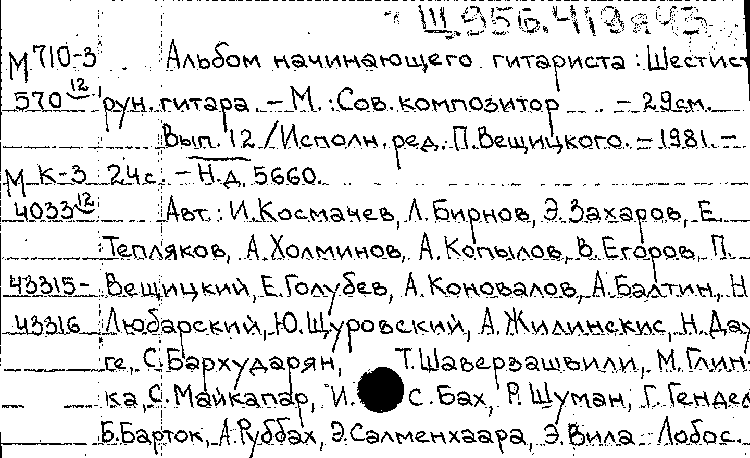 Щ956.419я43
М 710-3 Альбом начинающего гитариста: Шестист
570 12 рун. гитара. – М.: Сов. композитор – 29см.
Вып. 12 / Исполн. ред. П. Вещицкого. – 1981. –
М К-3 24с. – Н.д. 5660.
4033 12 Авт.: И. Космачев, Л. Бирнов, Э. Захаров, Е.
Тепляков, А. Холминов, А. Копылов, В. Егоров, П.
43315- Вещицкий, Е. Голубев, А. Коновалов, А. Балтин, Н
43316 Любарский, Ю. Щуровский, А. Жилинскис, Н. Дау
ге, С. Бархударян, Т. Шаверзашвили, М. Глин-
ка, С. Майкапар, И. С. Бах, Р. Шуман, Г. Гендел
Б. Барток, А. Руббах, Э. Салменхаара, Э. Вила-Лобос.